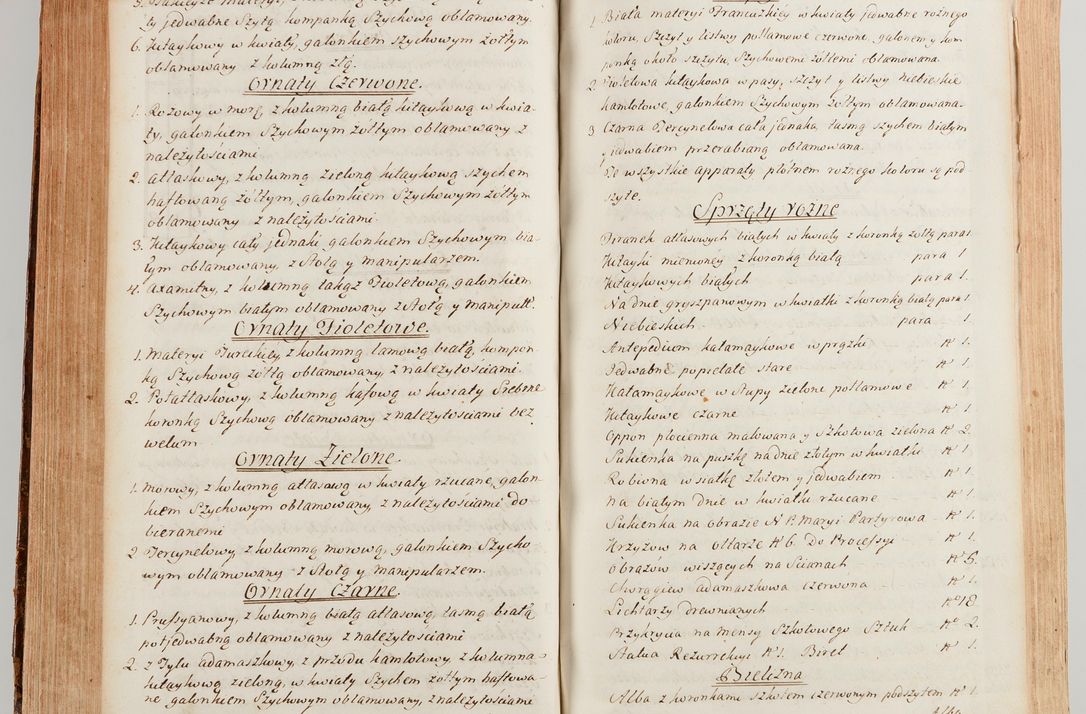 ty jedwabne Szytą kompanką Szychową oblamowany.
6. Kitaykowy w kwiaty, galonkiem Szychowym żółtym
oblamowany z kolumną złą.
Ornaty Czerwone.
1. Rożowy w morę, z kolumną białą kitaykową w kwia-
ty, galonkiem Szychowym żółtym oblamowany z
należytościami
2. Attaskowy, z kolumną zieloną kitaykową szychem
haftowaną żółtym, galonkiem Szychowym żółtym
oblamowany z należytościami
3. Kitaykowy cały jednaki galonkiem Szychowym bia-
łym oblamowany, z Stołą y manipularzem.
4. Axamitny, z kolumną takąż Fioletową, galonkiem
Szychowym białym oblamowany z Stołą y Manipułł.
Ornaty Fioletowe.
1. Materyi Tureckiey, z kolumną lamową białą, kompon-
ką Szychową żółtą oblamowany, z należytościami.
2. Połattaskowy, z kolumną kafową w kwiaty Srebrne
koronką Szychową oblamowany z należytościami bez
welum
Ornaty Zielone.
1. Morowy, z kolumną attasową w kwiaty rzucane, galon-
kiem Szychowym oblamowany, z należytościami do
bieranemi
2 Tercynelowy, z kolumną morową, galonkiem Szycho-
wym oblamowany z Stołą y Manipularzem.
Ornaty Czarne.
1. Prussyanowy, z kolumną białą attasową, tasmą białą
połjedwabną oblamowany z należytościami
2. z Tyłu adamaszkowy, z przodu kamlotowy, z kolumną
kitaykową zieloną, w kwiaty Szychem żółtym haftowa-
ne galonkiem Szychowym oblamowany, z należytościami
1 Biała materyi Francuzkiey w kwiaty jedwabne rożnego
koloru, Szczyt y listwy pottamowe czerwone, galonem y kom-
ponką około szczytu, Szychowemi żółtemi oblamowana.
2. Fioletowa kitaykowa w pasy, szczyt y listwy niebieskie
kamlotowe, galonkiem Szychowym żółtym oblamowana.
3 Czarna Tercynelowa cała jednaka, tasmą szychem białym
y jedwabiem przerabianą oblamowana.
Te wszystkie apparaty płótnem rożnego koloru są pod-
szyte.
Sprzęty rożne
Firanek attasowych białych w kwiaty z koronką żółtą para 1.
Kitayki mienioney z koronką białą para 1
Kitaykowych białych para 1.
Na dnie gryszpanowym w kwiatki z koronką białą para 1
Niebieskich para 1.
Antepedium kałamaykowe w prążki N 1.
Jedwabne popielate stare N 1.
Kałamaykowe w słupy zielone pottamowe N 1.
Kitaykowe czarne N 1.
Oppon płocienna malowana y Szkołowa zielona N 2.
Sukienka na puszkę na dnie złotym w kwiatki N 1.
Robiona w siatkę złotem y jedwabiem N 1.
Na białym dnie w kwiatki rzucane N 1.
Sukienka na obrazie N P. Maryi Partyrowa N 1.
Krzyżow na ołtarze N 6. do Processyi N 1.
Obrazow wiszących na Scianach N 6.
Chorągiew adamaszkowa czerwona N 1.
Lichtarzy drewnianych N 18
Przykrycia na Mensy Szkołowego Sztuk N 2.
Statua Rezurrekcyi N 1. Biret N 1.
Bielizna
Alba z koronkami szkołem czerwonym podszytem N 1.
Alba